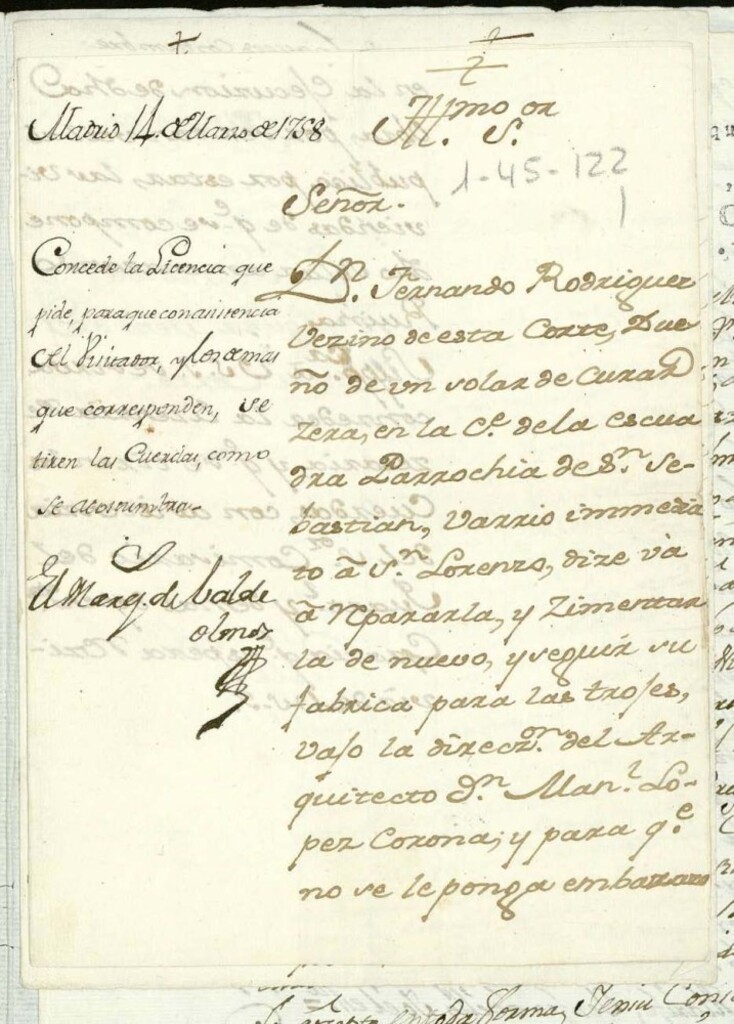 Madrid 14. de Marzo de 1758
Concede la Licencia que
pide, para que con asistencia
del Visitador, y los demas
que corresponden, se
tiren las Cuerdas, como
se acostumbra.
El Marq. de Valde
olmos
Yllmo or
S.
1-45-122
1
Señor.
Dn. Fernando Rodriguez
Vezino de esta Corte, Due
ño de un solar de Curad
zera, en la Ce. de la escua
dra Parrochia de Sn. Se-
bastian, Varrio immedia
to â Sn. Lorenzo, dize vâ
â Repararla, y Zimentar
la de nuevo, y seguir su
fabrica para las troses,
vaso la direczon. del Ar-
quitecto Dn. Manl. Lo-
pez Corona; y para qe.
no se le ponga embarazo